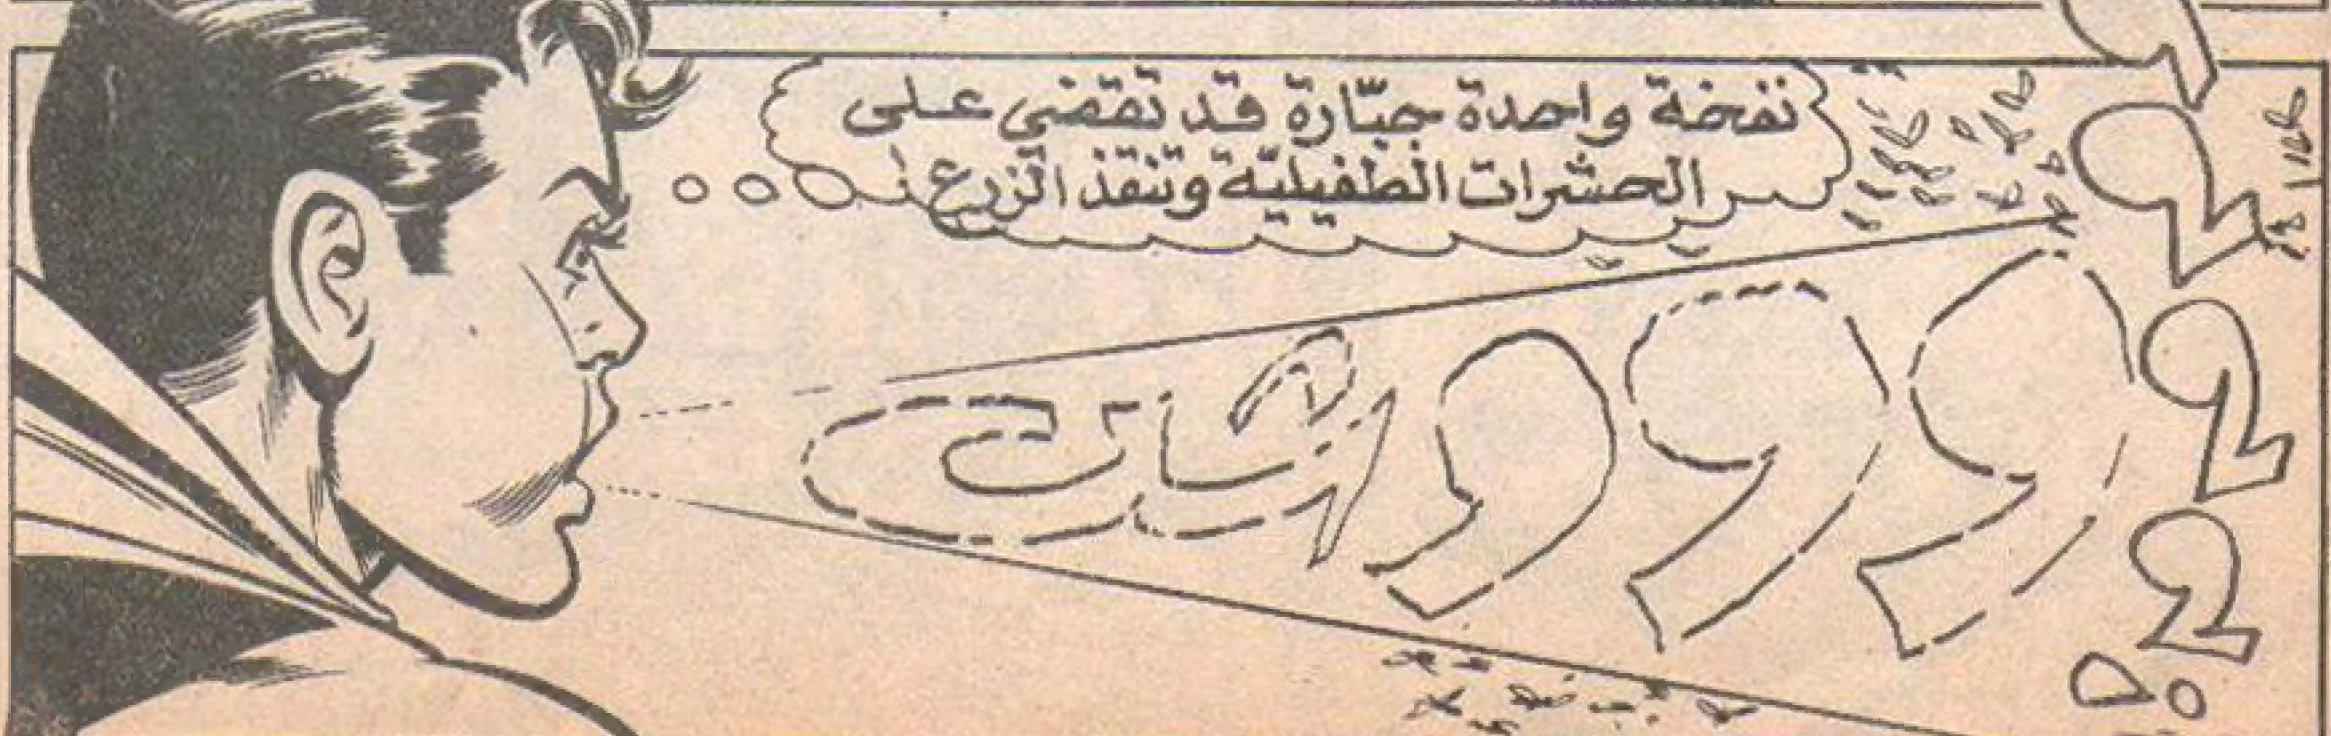 نفخة واحدة جبّارة قد تقضي على
الحشرات الطفيليّة وتنقذ الزرع!
ووو